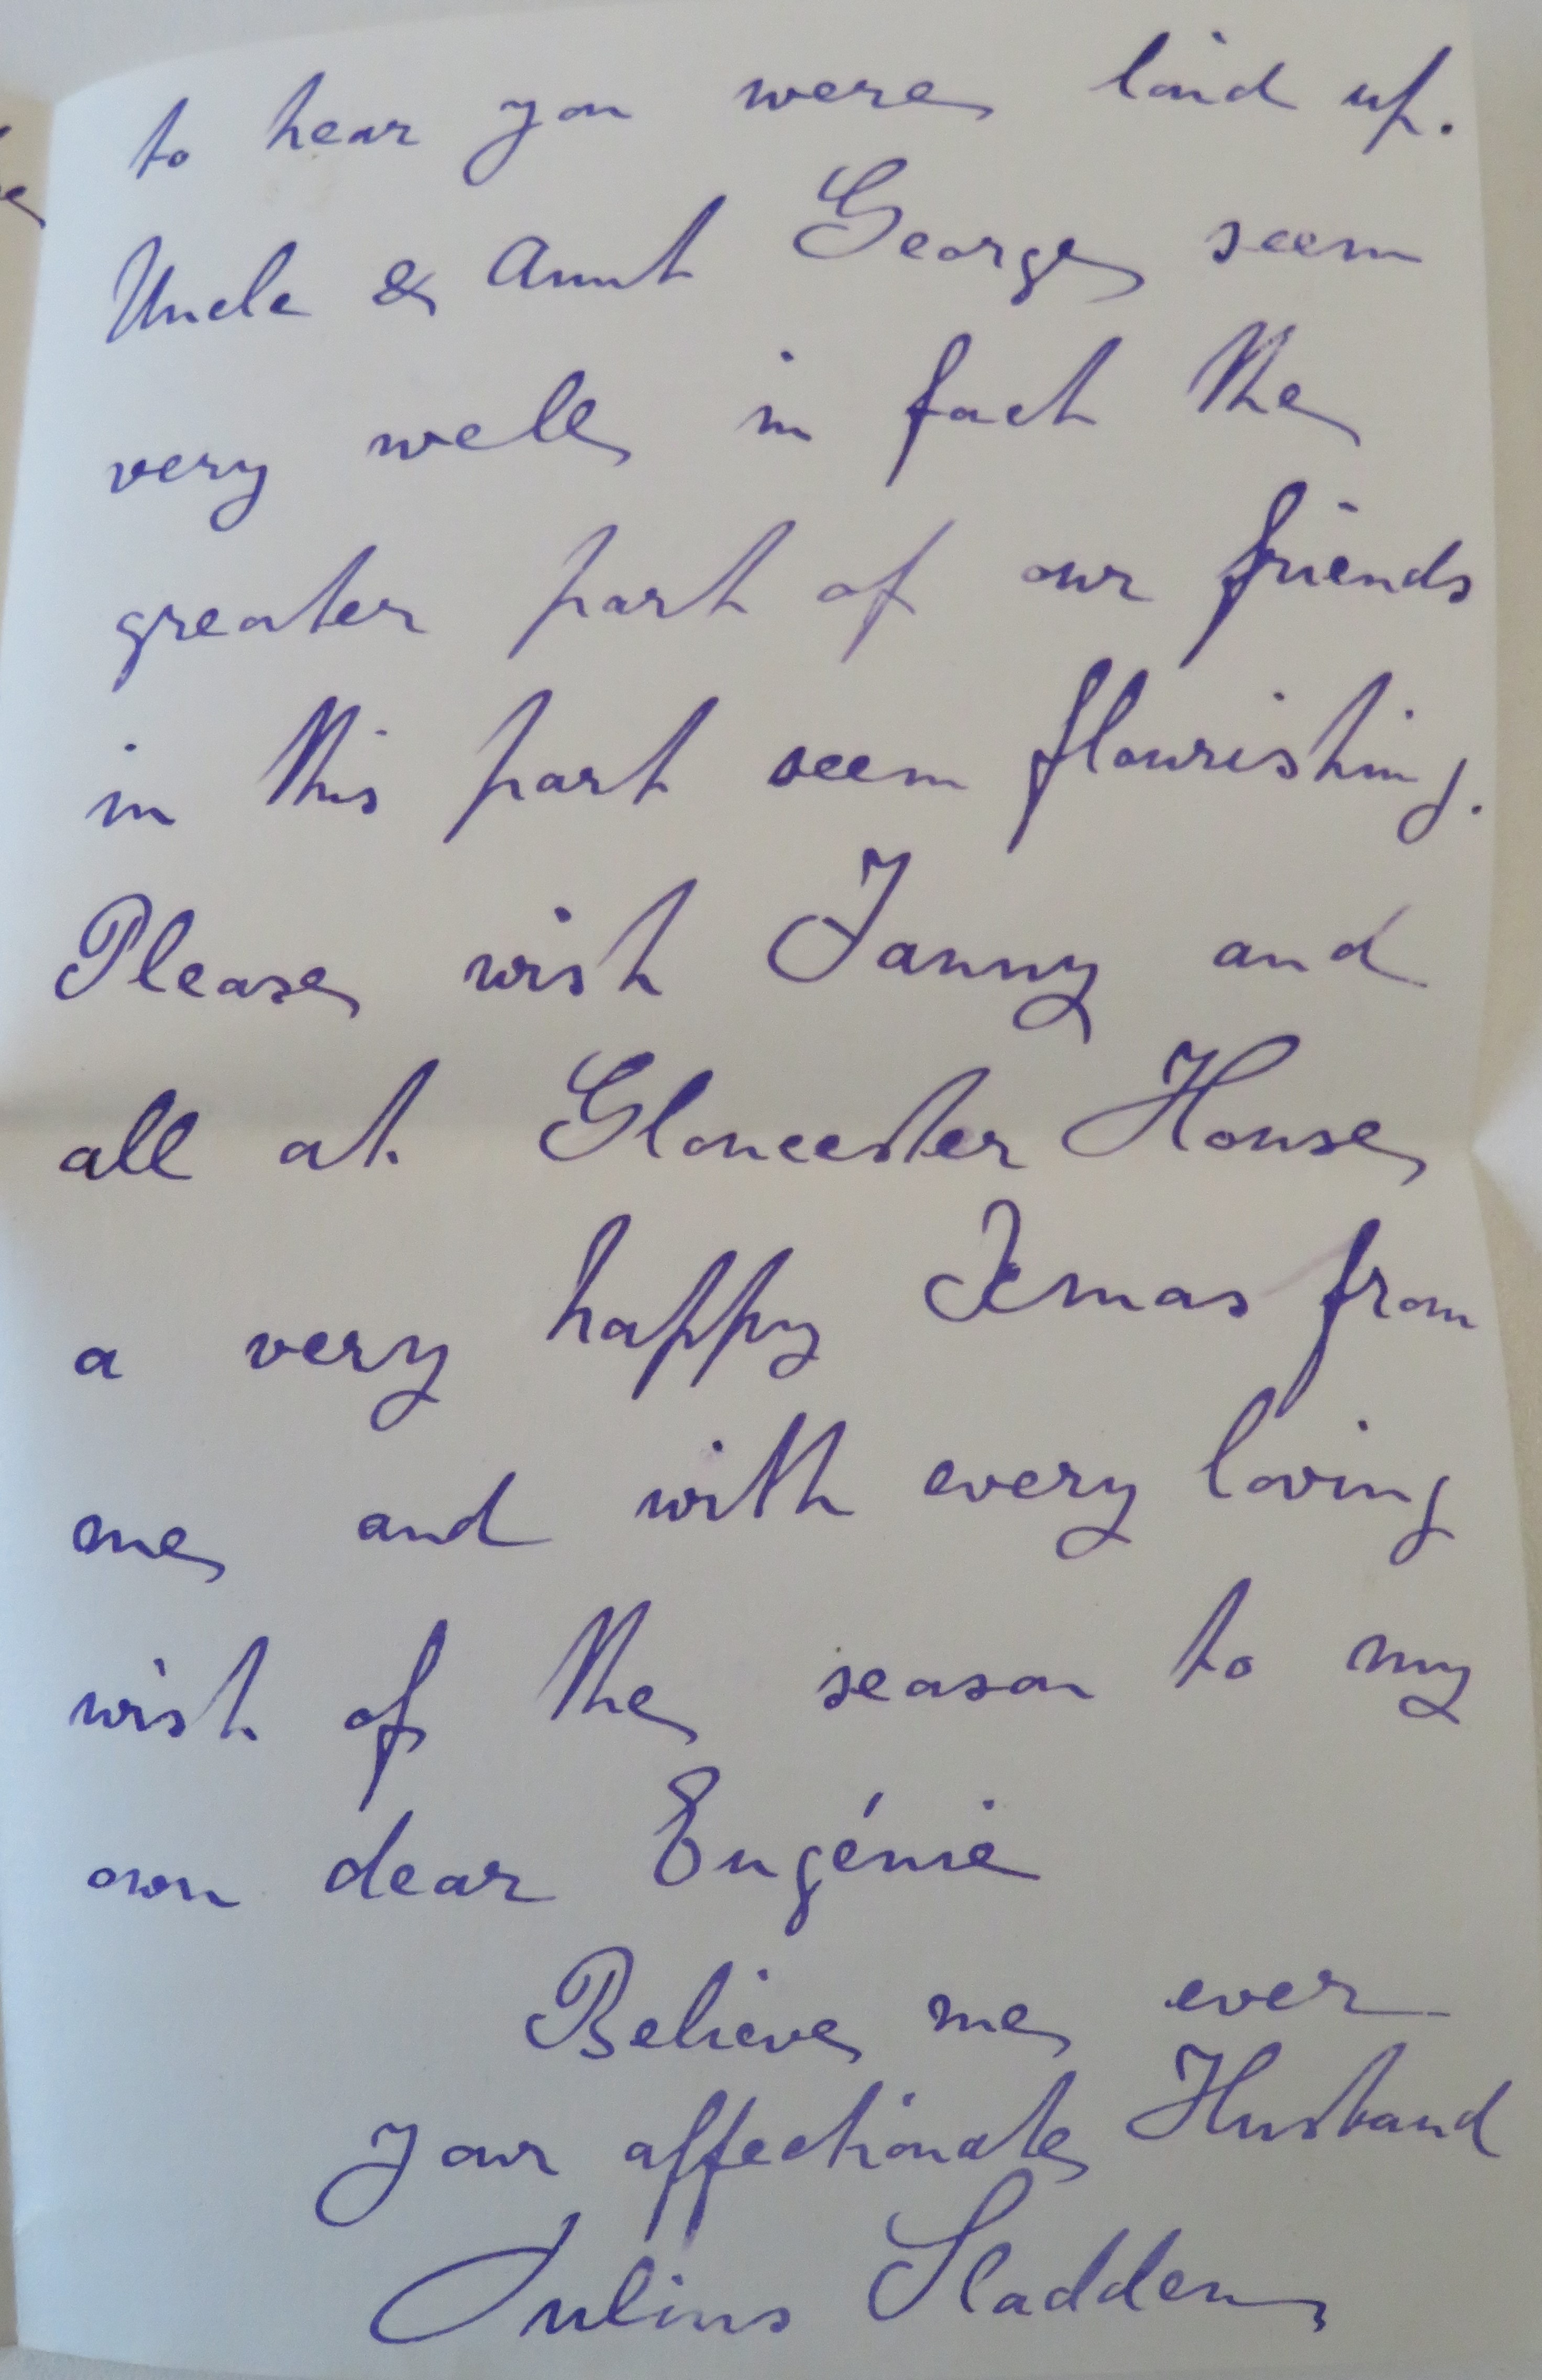 to hear you were laid up.
Uncle & Aunt George seem
very well in fact the
greater part of our friends
in this part seem flourishing.
Please wish Fanny and
all at Gloucester House
a very happy Xmas from
me and with every loving
wish of the season to my
own dear Eugénie
Believe me ever
your affectionate Husband
Julius Sladden